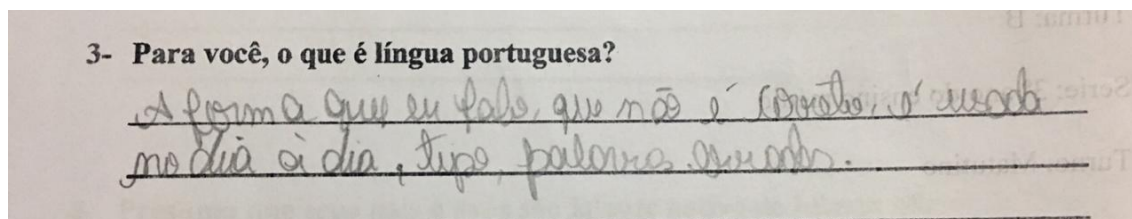 3- Para você, o que é língua portuguesa?
A forma que eu falo, que não é correta, é usada
no dia à dia, tipo, palavras erradas.